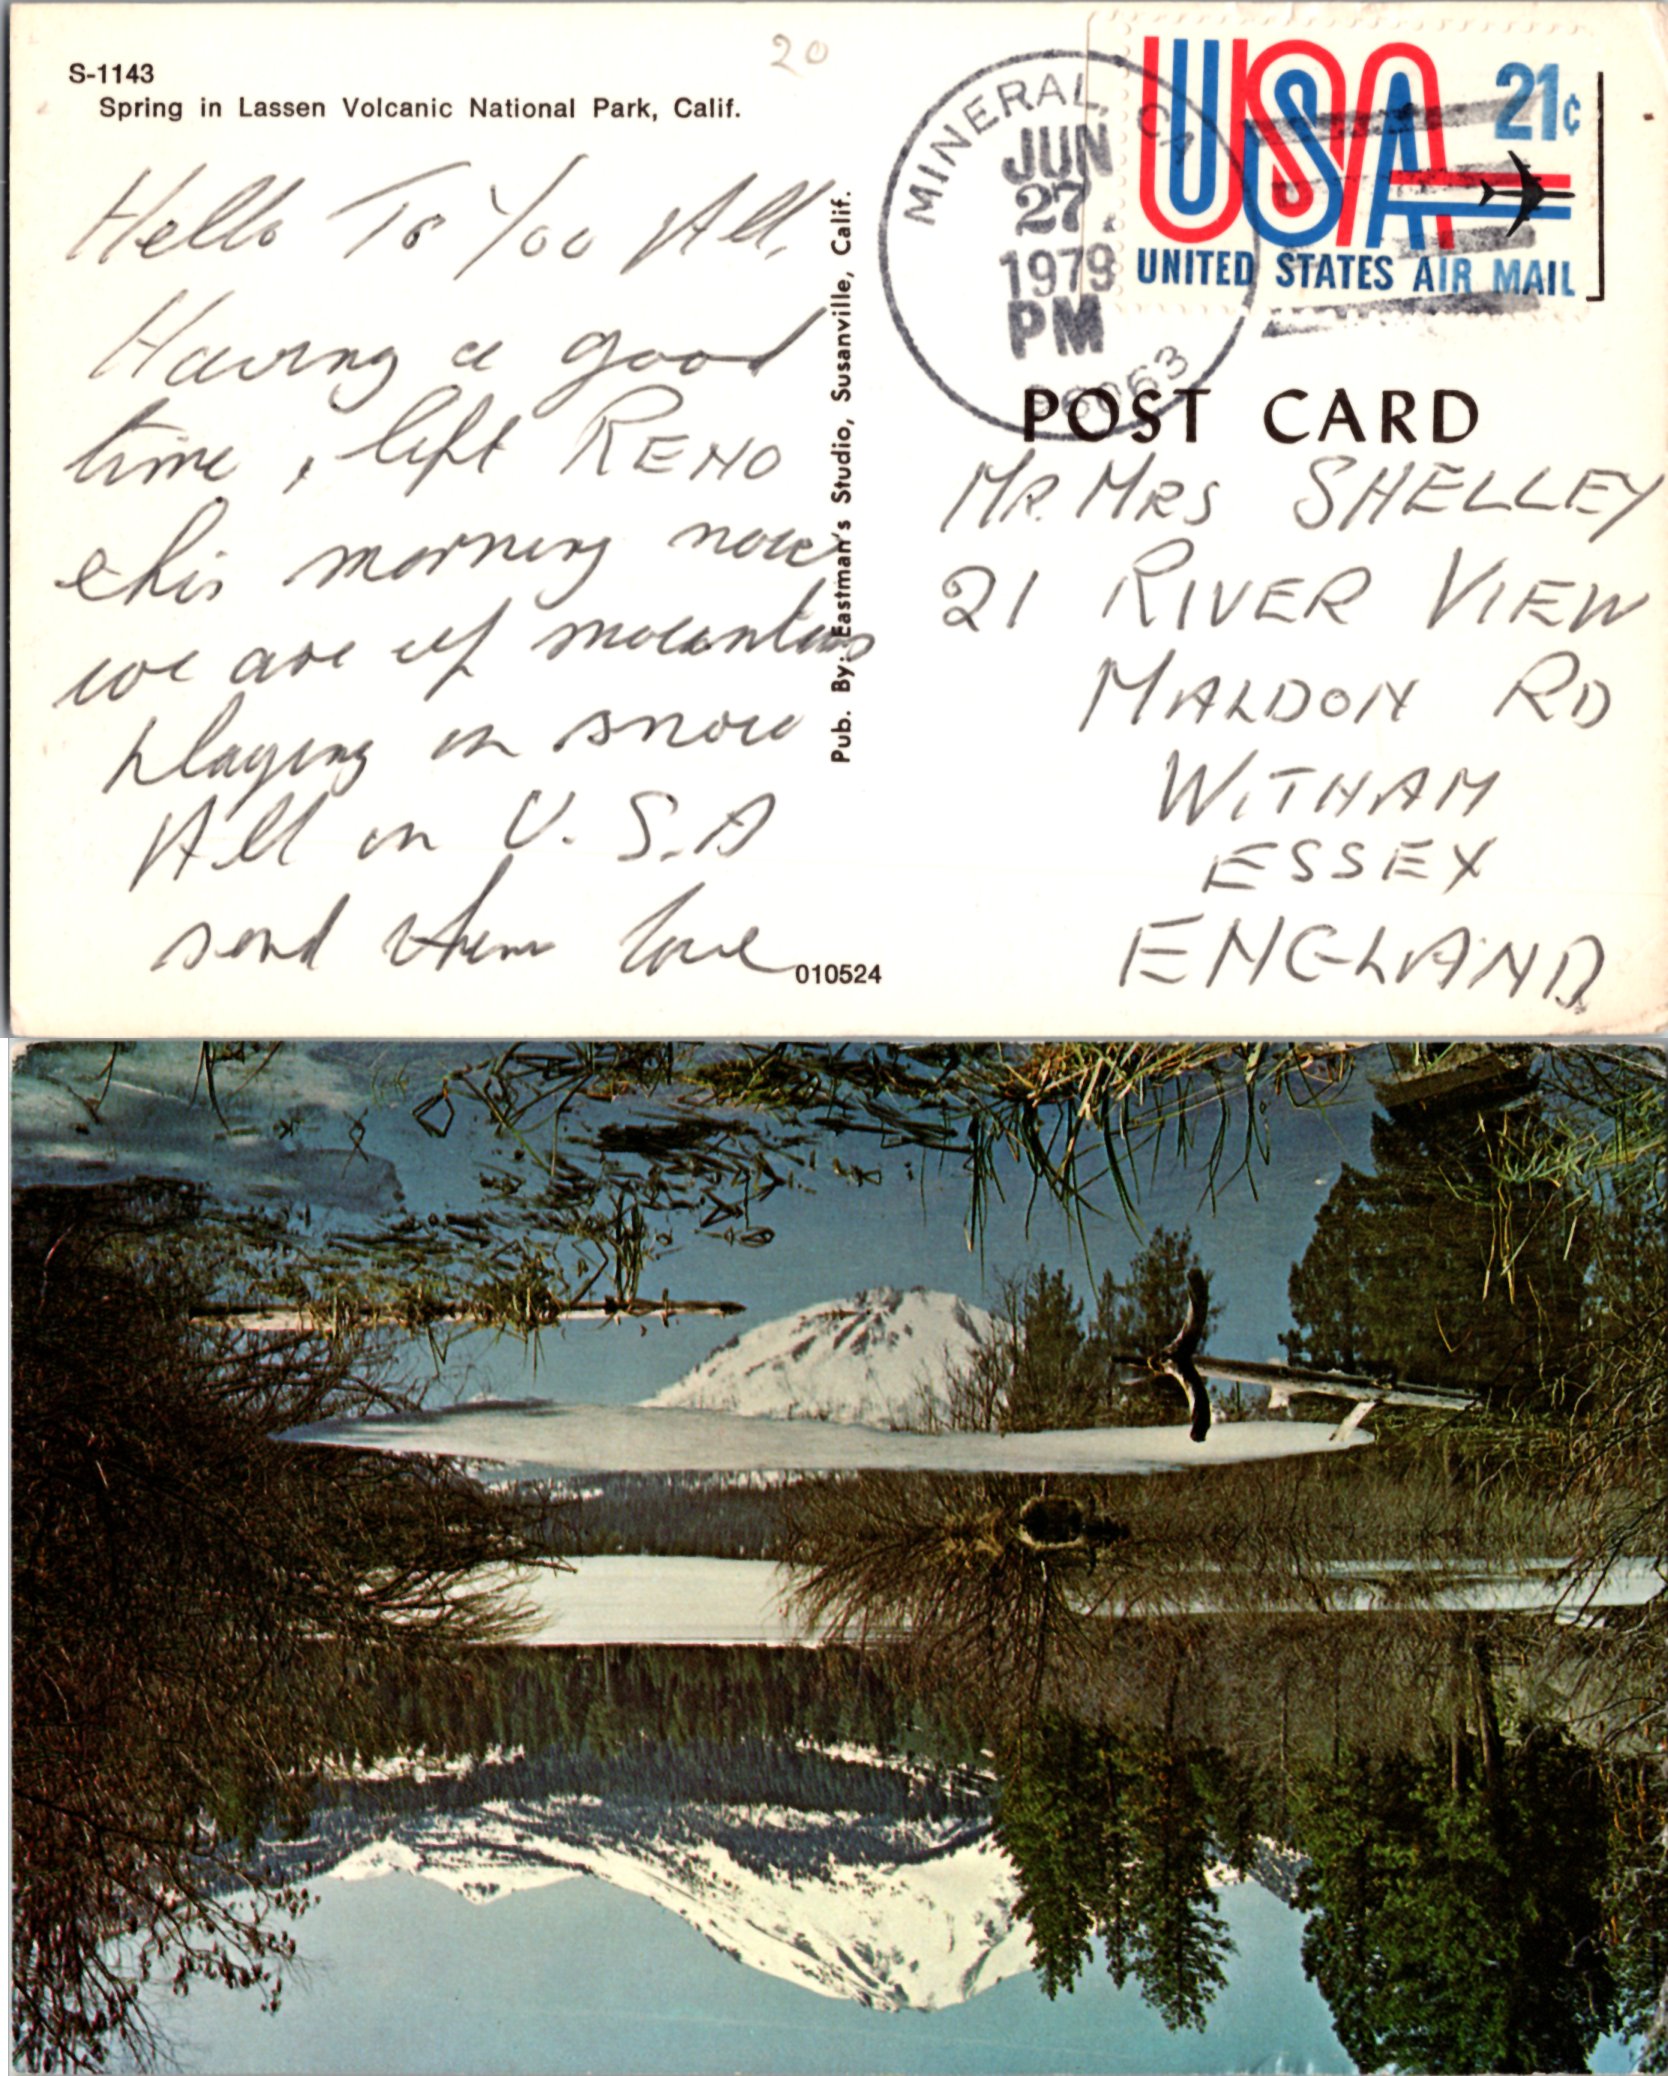 20
S-1143
Spring in Lassen Volcanic National Park, Calif.
Hello To You All,
Having a good
time, left RENO
this morning now
we are up mountains
playing in snow
All in U.S.A
send them love
Pub. By: Eastman's Studio, Susanville, Calif.
010524
MINERAL, CA
JUN
27
1979
PM
96063
USA 21¢
UNITED STATES AIR MAIL
POST CARD
MR. MRS SHELLEY
21 RIVER VIEW
MALDON RD
WITHAM
ESSEX
ENGLAND